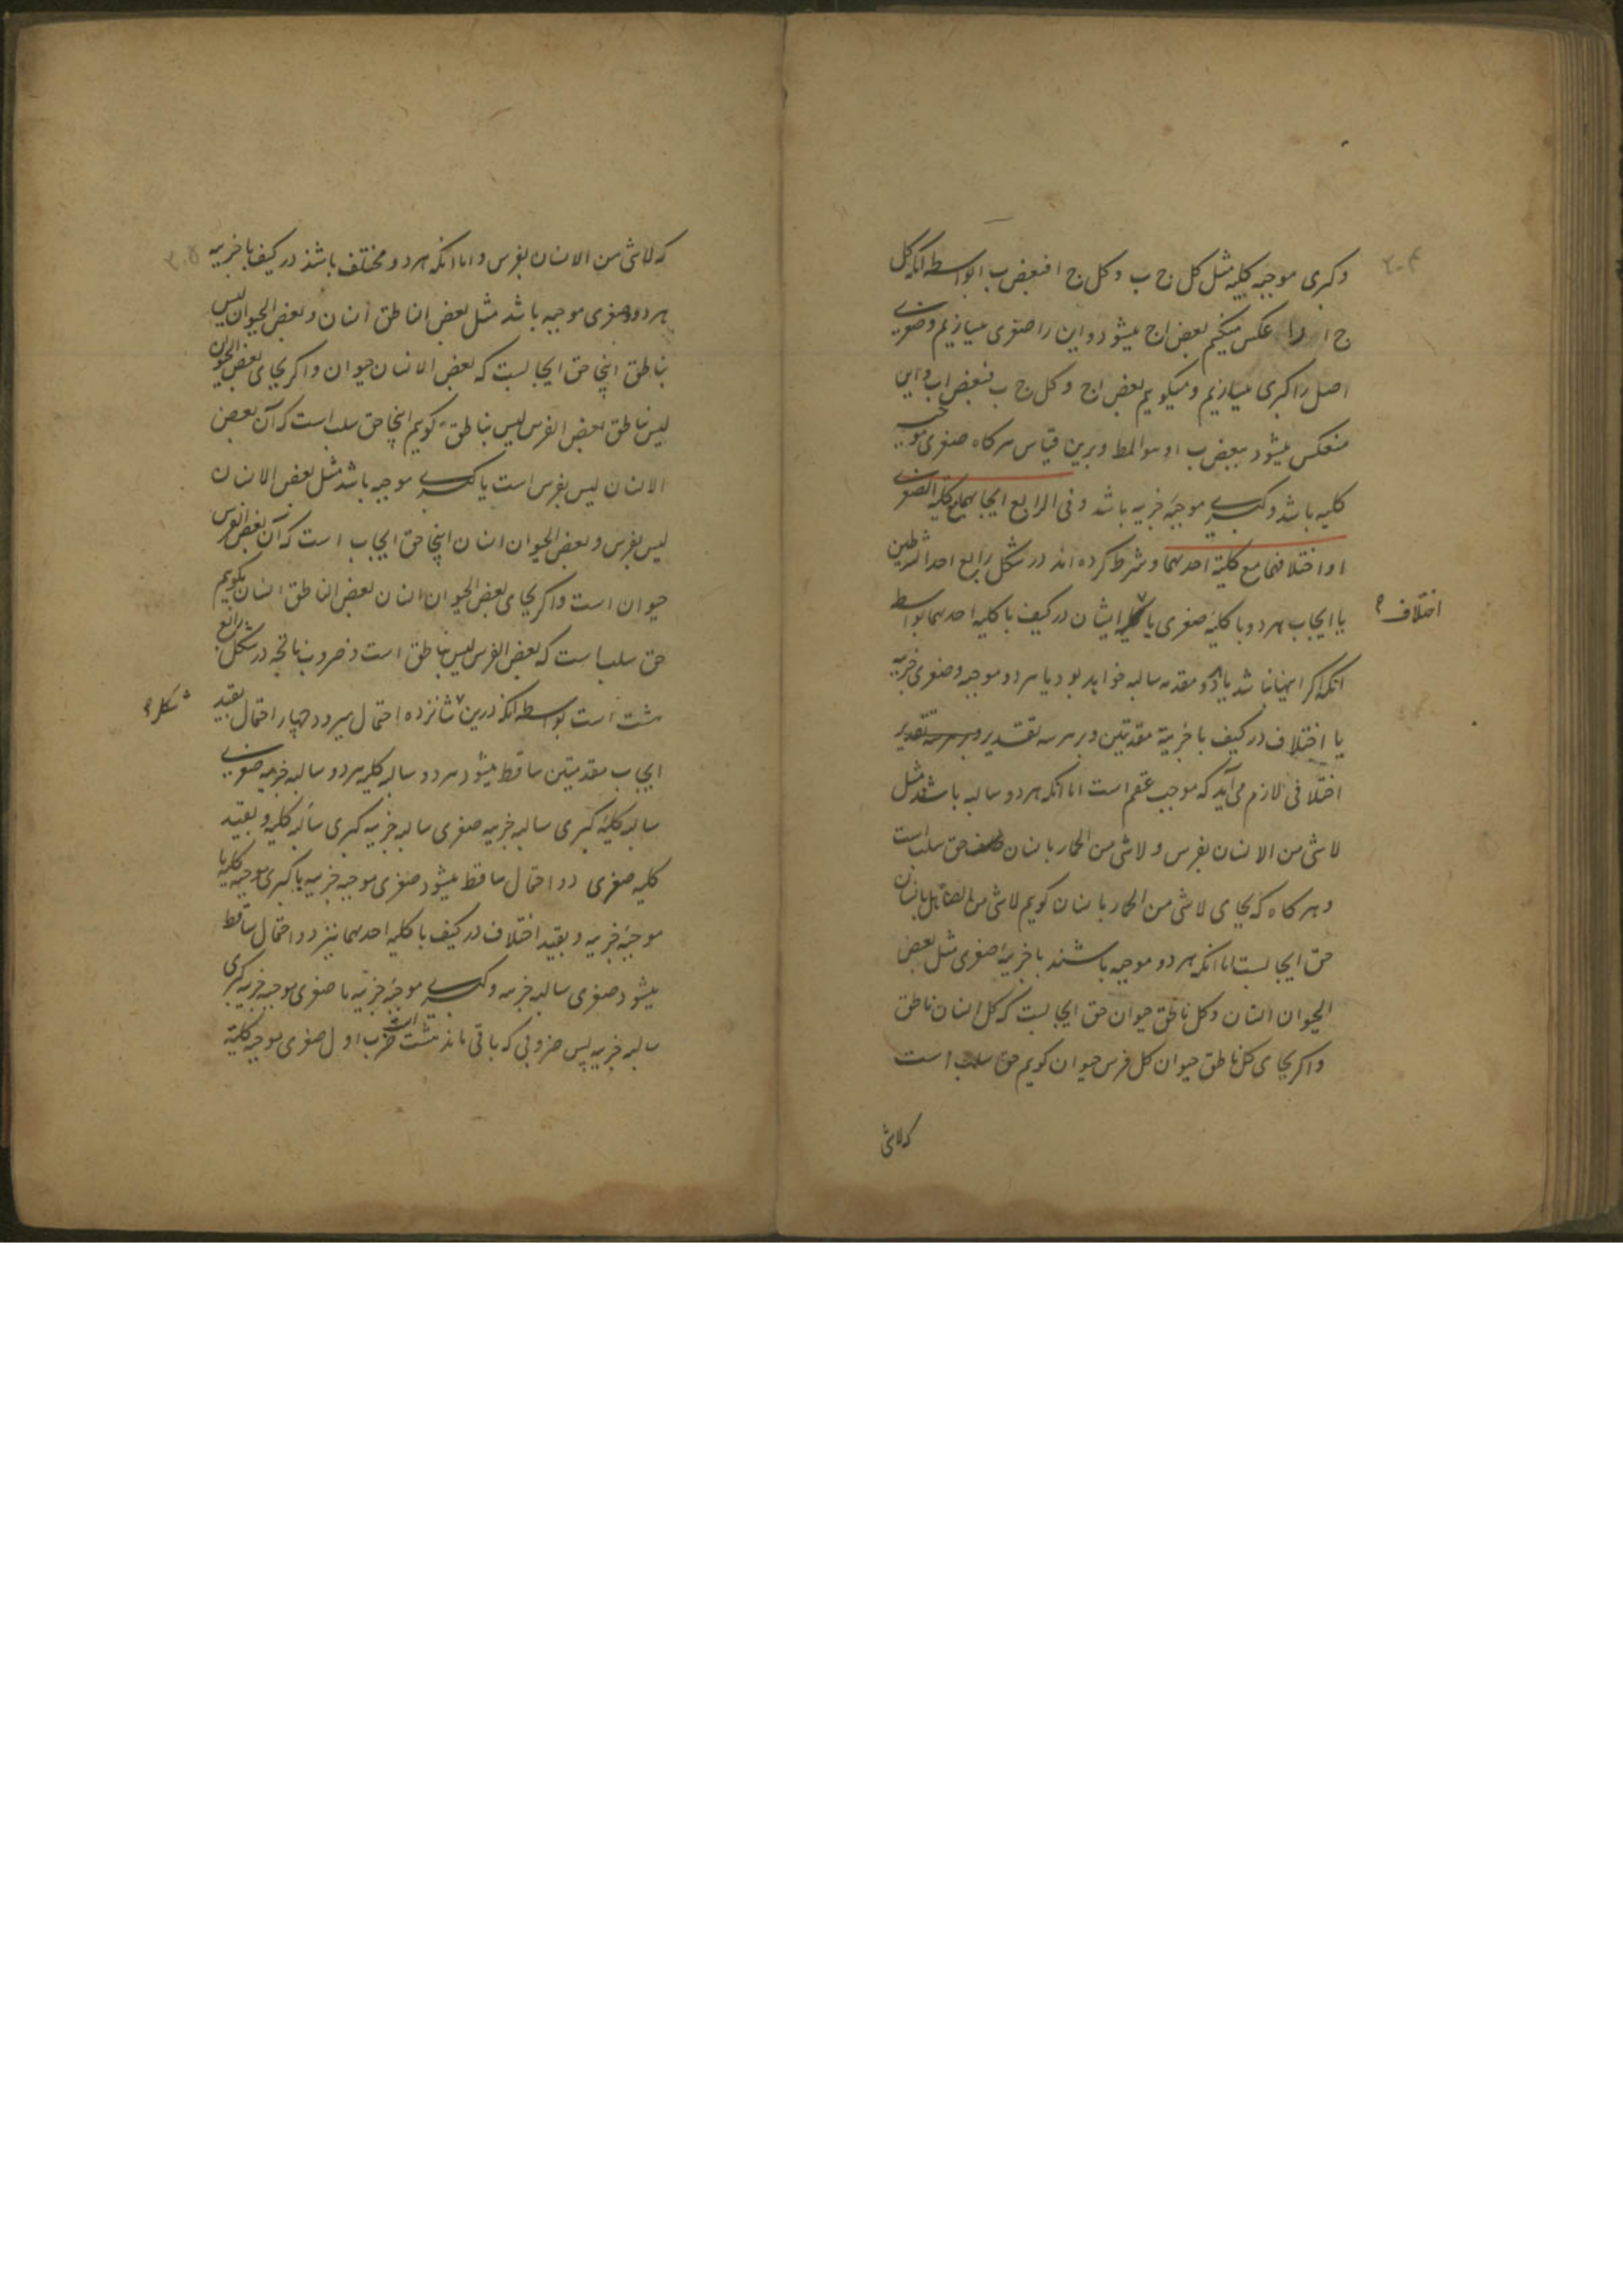 وکبری موجبه کلیه مثل کل ج ب وکل ج ا فبعض ب ا بواسطه آنکه کل
ج ا را عکس میکنیم بعض ا ج میشود واین را صغری میسازیم وصغری
اصل را کبری میسازیم ومیکوییم بعض ا ج وکل ج ب فبعض ا ب واین
منعکس میشود ببعض ب ا وهو المط وبرین قیاس هرکاه صغری موجبه
کلیه باشد وکبری موجبه جزییه باشد وفی الرابع ایجابهما مع کلیة الصغری
او اختلافهما مع کلیة احدیهما وشرط کرده اند در شکل رابع احد الشرطین
یا ایجاب هردو با کلیه صغری یا ایشان در کیف با کلیه احدیهما بواسطه
اختلاف
آنکه اکر اینها نباشد یا هر دو مقدمه سالبه خواهد بود یا هردو موجبه وصغری جزییه
یا اختلاف در کیف با جزییة مقدمتین وبر هر سه تقدیر وبر هر سه تقدیر
اختلافی لازم می آید که موجب عقم است اما آنکه هردو سالبه باشند مثل
لاشی من الانسان بفرس ولاشی من الحمار بانسان حق سلب است
وهرکاه که بجای لاشی من الحمار بانسان کوییم لاشی من الصاهل بانسان
حق ایجابست اما آنکه هردو موجبه باشند با جزییه صغری مثل بعض
الحیوان انسان وکل ناطق حیوان حق ایجابست که کل انسان ناطق
واکر بجای کل ناطق حیوان کل فرس حیوان کوییم حق سلب است
که لاشی
که لاشی من الانسان بفرس واما آنکه هردو مختلف باشند در کیف با جزییه
هردو وصغری موجبه باشد مثل بعض الناطق انسان وبعض الحیوان لیس
بناطق اینجا حق ایجابست که بعض الانسان حیوان واکر بجای بعض الحیوان
لیس بناطق بعض الفرس لیس بناطق کوییم اینجا حق سلب است که آن بعض
الانسان لیس بفرس است یا کبری موجبه باشد مثل بعض الانسان
لیس بفرس وبعض الحیوان انسان اینجا حق ایجاب است که آن بعض الفرس
حیوان است واکر بجای بعض الحیوان انسان بعض الناطق انسان بکوییم
حق سلب است که بعض الفرس لیس بناطق است وضروب ناتجه در شکل رابع
هشت است بواسطه آنکه درین شانزده احتمال میرود چهار احتمال بقید
شکل
ایجاب مقدمتین ساقط میشود هردو سالبه کلیه هردو سالبه جزییه صغری
سالبه کلیه کبری سالبه جزییه صغری سالبه جزییه کبری سالبه کلیه وبقید
کلیه صغری دو احتمال ساقط میشود صغری موجبه جزییه با کبری موجبه کلیه یا
موجبه جزییه وبقید اختلاف در کیف با کلیه احدیهما نیز دو احتمال ساقط
میشود صغری سالبه جزییه وکبری موجبه جزییه یا صغری موجبه جزییه کبری
سالبه جزییه پس ضروبی که باقی ماند هشت است ضرب اول صغری موجبه کلیه